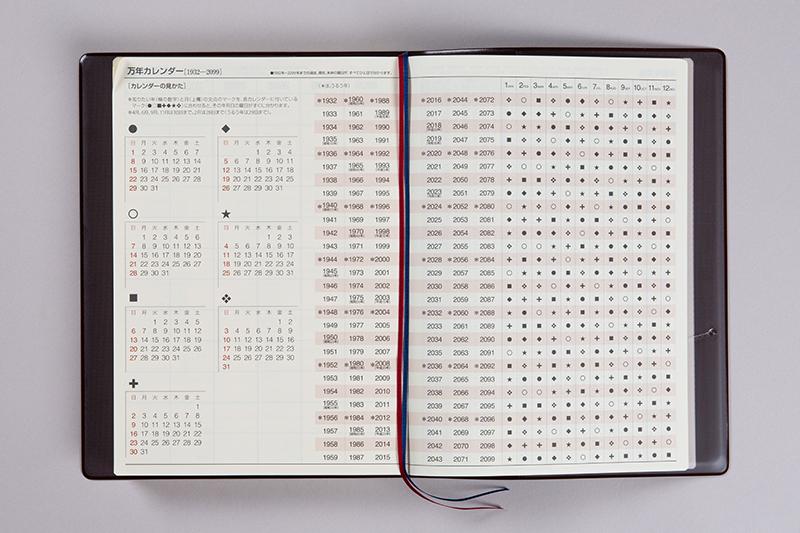 万年カレンダー[1932—2099]
[カレンダーの見かた]
日 月 火 水 木 金 土
1 2 3 4 5 6 7
8 9 10 11 12 13 14
15 16 17 18 19 20 21
22 23 24 25 26 27 28
29 30 31
日 月 火 水 木 金 土
1 2 3 4
5 6 7 8 9 10 11
12 13 14 15 16 17 18
19 20 21 22 23 24 25
26 27 28 29 30 31
日 月 火 水 木 金 土
1 2 3 4 5 6
7 8 9 10 11 12 13
14 15 16 17 18 19 20
21 22 23 24 25 26 27
28 29 30 31
日 月 火 水 木 金 土
1 2 3
4 5 6 7 8 9 10
11 12 13 14 15 16 17
18 19 20 21 22 23 24
25 26 27 28 29 30 31
日 月 火 水 木 金 土
1 2 3 4 5
6 7 8 9 10 11 12
13 14 15 16 17 18 19
20 21 22 23 24 25 26
27 28 29 30 31
日 月 火 水 木 金 土
1 2
3 4 5 6 7 8 9
10 11 12 13 14 15 16
17 18 19 20 21 22 23
24 25 26 27 28 29 30
31
日 月 火 水 木 金 土
1
2 3 4 5 6 7 8
9 10 11 12 13 14 15
16 17 18 19 20 21 22
23 24 25 26 27 28 29
30 31
(＊は、うるう年)
＊1932 ＊1960 ＊1988
1933 1961 1989
1934 1962 1990
1935 1963 1991
＊1936 ＊1964 ＊1992
1937 1965 1993
1938 1966 1994
1939 1967 1995
＊1940 ＊1968 ＊1996
1941 1969 1997
1942 1970 1998
1943 1971 1999
＊1944 ＊1972 ＊2000
1945 1973 2001
1946 1974 2002
1947 1975 2003
＊1948 ＊1976 ＊2004
1949 1977 2005
1950 1978 2006
1951 1979 2007
＊1952 ＊1980 ＊2008
1953 1981 2009
1954 1982 2010
1955 1983 2011
＊1956 ＊1984 ＊2012
1957 1985 2013
1958 1986 2014
1959 1987 2015
1JAN 2FEB 3MAR 4APR 5MAY 6JUN 7JUL 8AUG 9SEP 10OCT 11NOV 12DEC
＊2016 ＊2044 ＊2072
2017 2045 2073
2018 2046 2074
2019 2047 2075
＊2020 ＊2048 ＊2076
2021 2049 2077
2022 2050 2078
2023 2051 2079
＊2024 ＊2052 ＊2080
2025 2053 2081
2026 2054 2082
2027 2055 2083
＊2028 ＊2056 ＊2084
2029 2057 2085
2030 2058 2086
2031 2059 2087
＊2032 ＊2060 ＊2088
2033 2061 2089
2034 2062 2090
2035 2063 2091
＊2036 ＊2064 ＊2092
2037 2065 2093
2038 2066 2094
2039 2067 2095
＊2040 ＊2068 ＊2096
2041 2069 2097
2042 2070 2098
2043 2071 2099